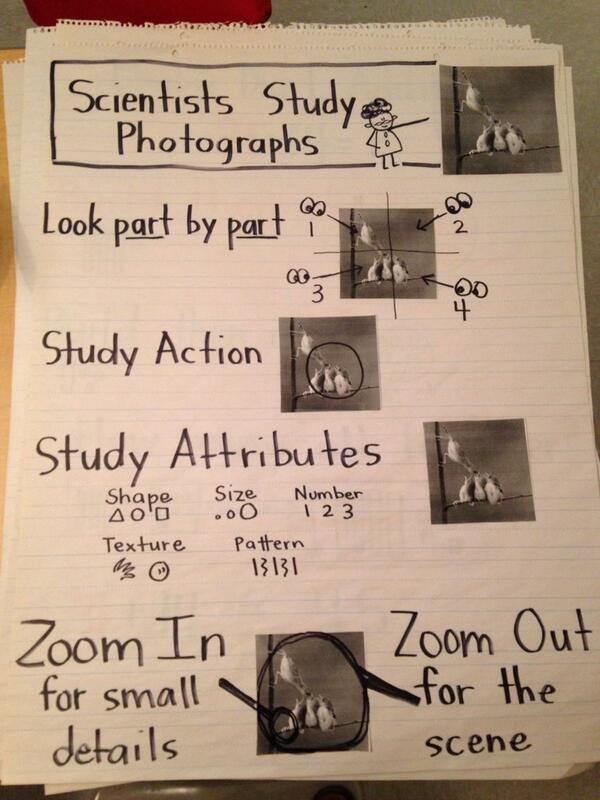 Scientists Study
Photographs
Look part by part
1
2
3
4
Study Action
Study Attributes
Shape Size Number
1 2 3
Texture Pattern
Zoom In
for small
details
Zoom Out
for the
scene